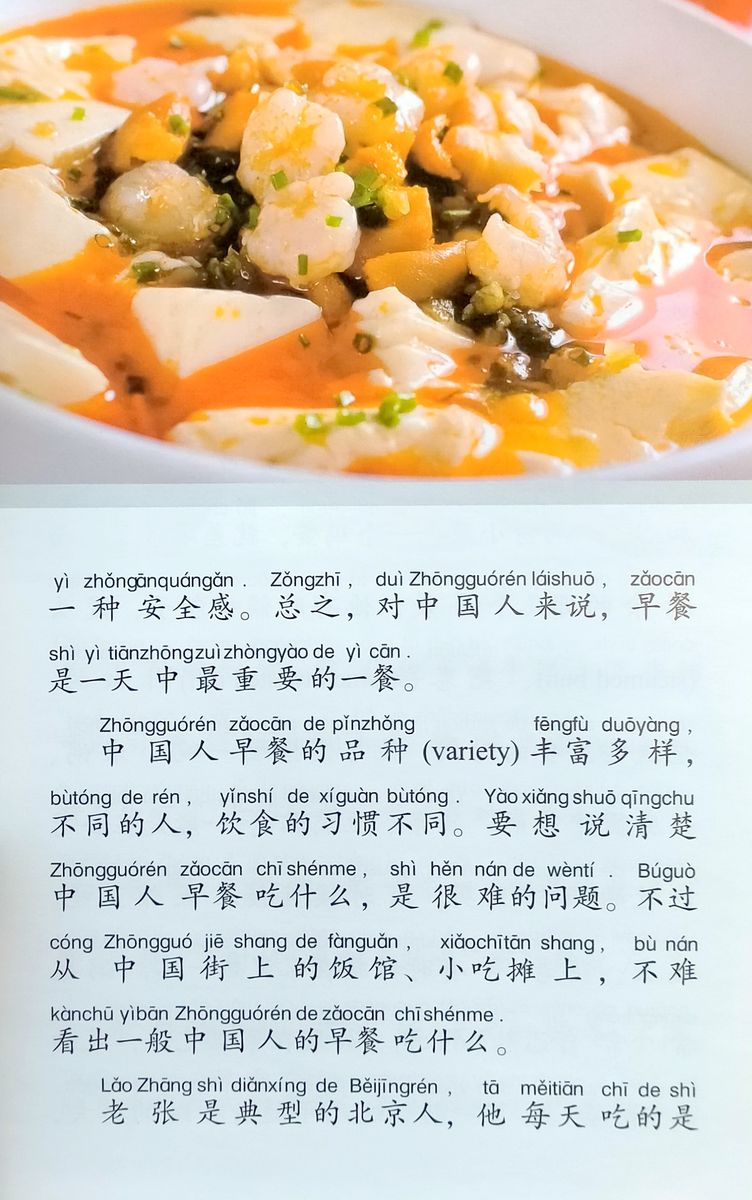 yì zhǒngānquángǎn. Zǒngzhī, duì Zhōngguórén láishuō, zǎocān
一种安全感。总之，对中国人来说，早餐
shì yì tiānzhōngzuì zhòngyào de yì cān.
是一天中最重要的一餐。
Zhōngguórén zǎocān de pǐnzhǒng fēngfù duōyàng,
中国人早餐的品种(variety)丰富多样，
bùtóng de rén, yǐnshí de xíguàn bùtóng. Yào xiǎng shuō qīngchu
不同的人，饮食的习惯不同。要想说清楚
Zhōngguórén zǎocān chī shénme, shì hěn nán de wèntí. Búguò
中国人早餐吃什么，是很难的问题。不过
cóng Zhōngguó jiē shang de fànguǎn, xiǎochītān shang, bù nán
从中国街上的饭馆、小吃摊上，不难
kànchū yìbān Zhōngguórén de zǎocān chī shénme.
看出一般中国人的早餐吃什么。
Lǎo Zhāng shì diǎnxíng de Běijīngrén, tā měitiān chī de shì
老张是典型的北京人，他每天吃的是